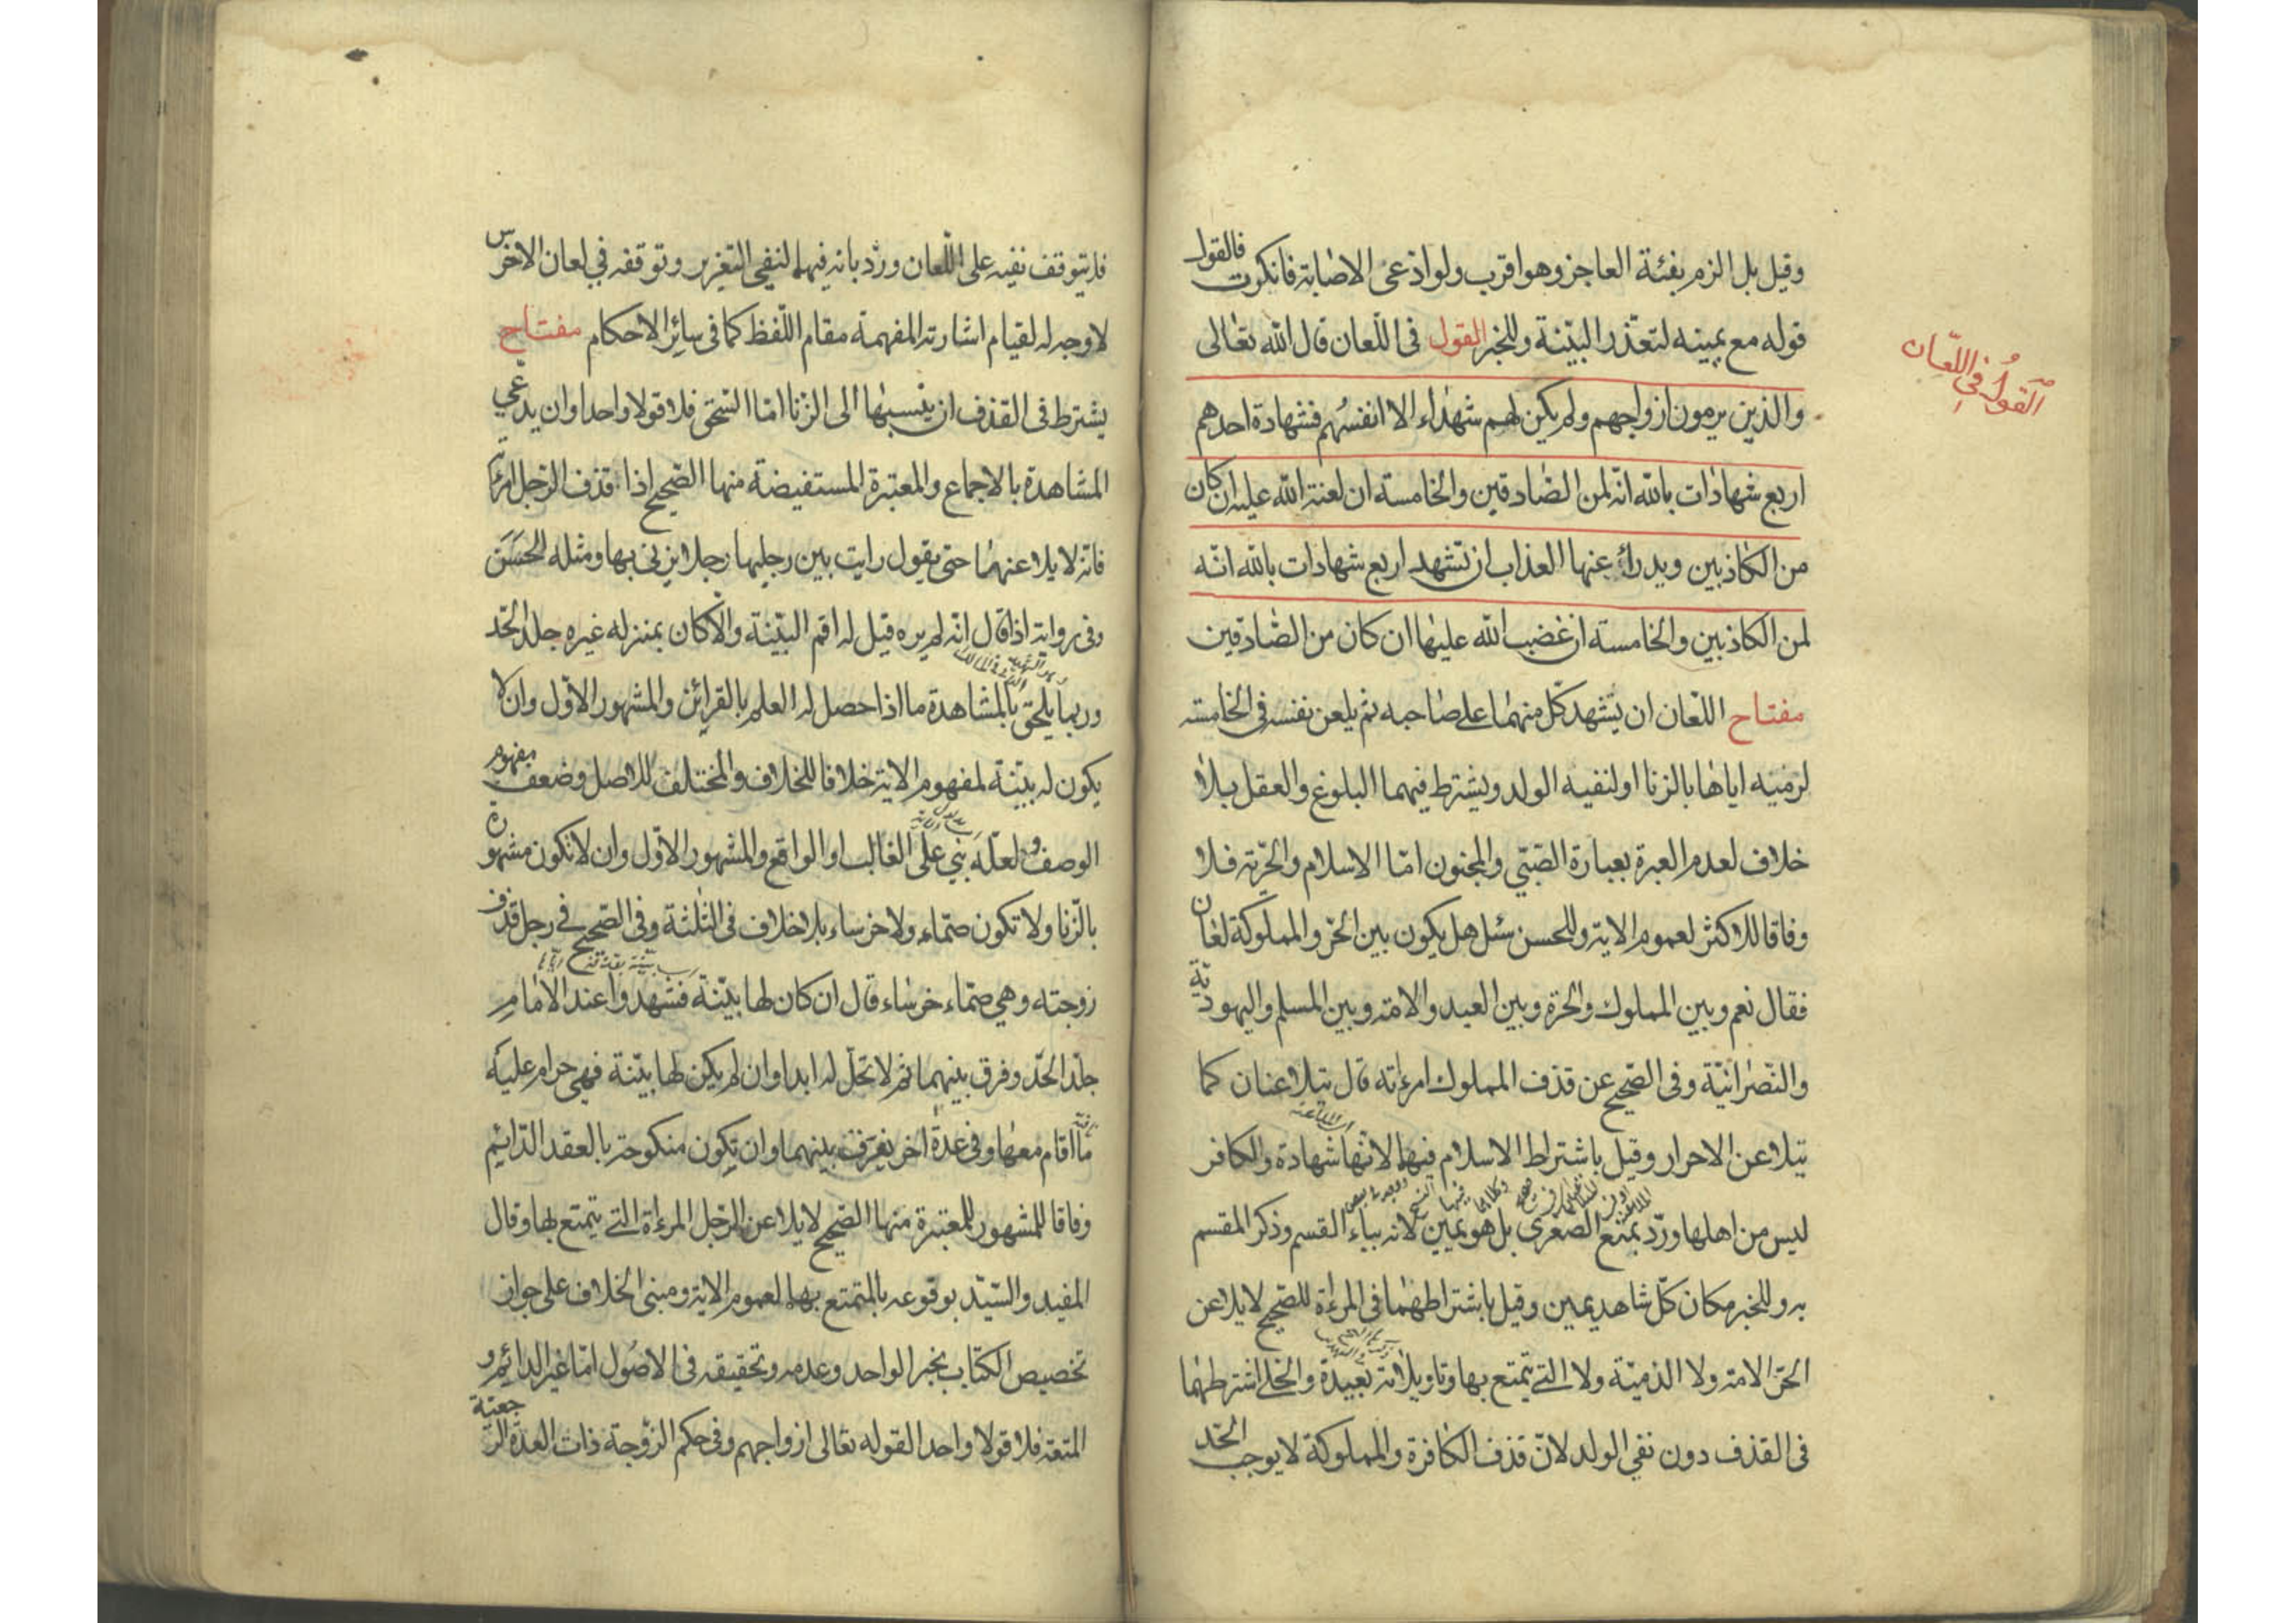 وقيل بل الزم بفئة العاجز وهو اقرب ولو ادعى الاصابة فانكرت فالقول
قوله مع يمينه لتعذر البينة وللخبر القول فى اللعان قال الله تعالى
القول في اللعان
والذين يرمون ازواجهم ولم يكن لهم شهداء الا انفسهم فشهادة احدهم
اربع شهادات بالله انه لمن الصادقين والخامسة ان لعنة الله عليه ان كان
من الكاذبين ويدرأ عنها العذاب ان تشهد اربع شهادات بالله انه
لمن الكاذبين والخامسة ان غضب الله عليها ان كان من الصادقين
مفتاح اللعان ان يشهد كل منهما على صاحبه ثم يلعن نفسه فى الخامسة
لرميه اياها بالزنا او لنفيه الولد ويشترط فيهما البلوغ والعقل بلا
خلاف لعدم العبرة بعبارة الصبي والمجنون امّا الاسلام والحرية فلا
وفاقا للاكثر لعموم الاية وللحسن سئل هل يكون بين الحر والمملوكة لعان
فقال نعم وبين المملوك والحرة وبين العبد والامة وبين المسلم واليهودية
والنصرانية وفى الصحيح عن قذف المملوك امرءته قال يتلاعنان كما
يتلاعن الاحرار وقيل باشتراط الاسلام فيها لانها شهادة والكافر
ليس من اهلها وردّ بمنع الصغرى بل هو يمين لانه بباء القسم وذكر المقسم
به وللخبر مكان كل شاهد يمين وقيل باشتراطهما فى المرءة للصحيح لا يلاعن
الحر الامة ولا الذمية ولا التي يتمتع بها وتاويلاته بعيدة والحلي اشترطهما
فى القذف دون نفي الولد لان قذف الكافرة والمملوكة لا يوجب الحد
فلا يتوقف نفيه على اللعان وردّ بانه فيها لنفي التعزير وتوقفه في لعان الاخرس
لا وجه له لقيام اشارته المفهمة مقام اللفظ كما فى سائر الاحكام مفتاح
يشترط فى القذف ان ينسبها الى الزنا امّا السحق فلا قولا واحدا وان يدعي
المشاهدة بالاجماع والمعتبرة المستفيضة منها الصحيح اذا قذف الرجل امرءته
فانه لا يلاعنهما حتى يقول رايت بين رجليها رجلا يزنى بها ومثله الحسن
وفى رواية اذا قال انه لم يره قيل له اقم البينة والا كان بمنزله غيره جلد الحد
وربما يلحق بالمشاهدة ما اذا حصل له العلم بالقرائن والمشهور الاول وان لا
يكون له بينة لمفهوم الاية خلافا للخلاف والمختلف للاصل وضعف مفهوم
الوصف ولعله بني على الغالب او الواقع والمشهور الاول وان لا تكون مشهورة
بالزنا ولا تكون صماء ولا خرساء بلا خلاف فى الثلثة وفى الصحيح في رجل قذف
زوجته وهي صماء خرساء قال ان كان لها بينة فشهدوا عند الامام
جلد الحد وفرق بينهما ثم لا تحل له ابدا وان لم يكن لها بينة فهي حرام عليه
ما اقام معها وفى عدة اخر يفرق بينهما وان تكون منكوحة بالعقد الدايم
وفاقا للمشهور للمعتبرة منها الصحيح لا يلاعن الرجل المرءاة التي يتمتع بها وقال
المفيد والسيد بوقوعه بالمتمتع بها لعموم الاية ومبنى الخلاف على جواز
تخصيص الكتاب بخبر الواحد وعدمه وتحقيقه فى الاصول امّا غير الدائم و
المتعة فلا قولا واحدا لقوله تعالى ازواجهم وفى حكم الزوجة ذات العدة الرجعية